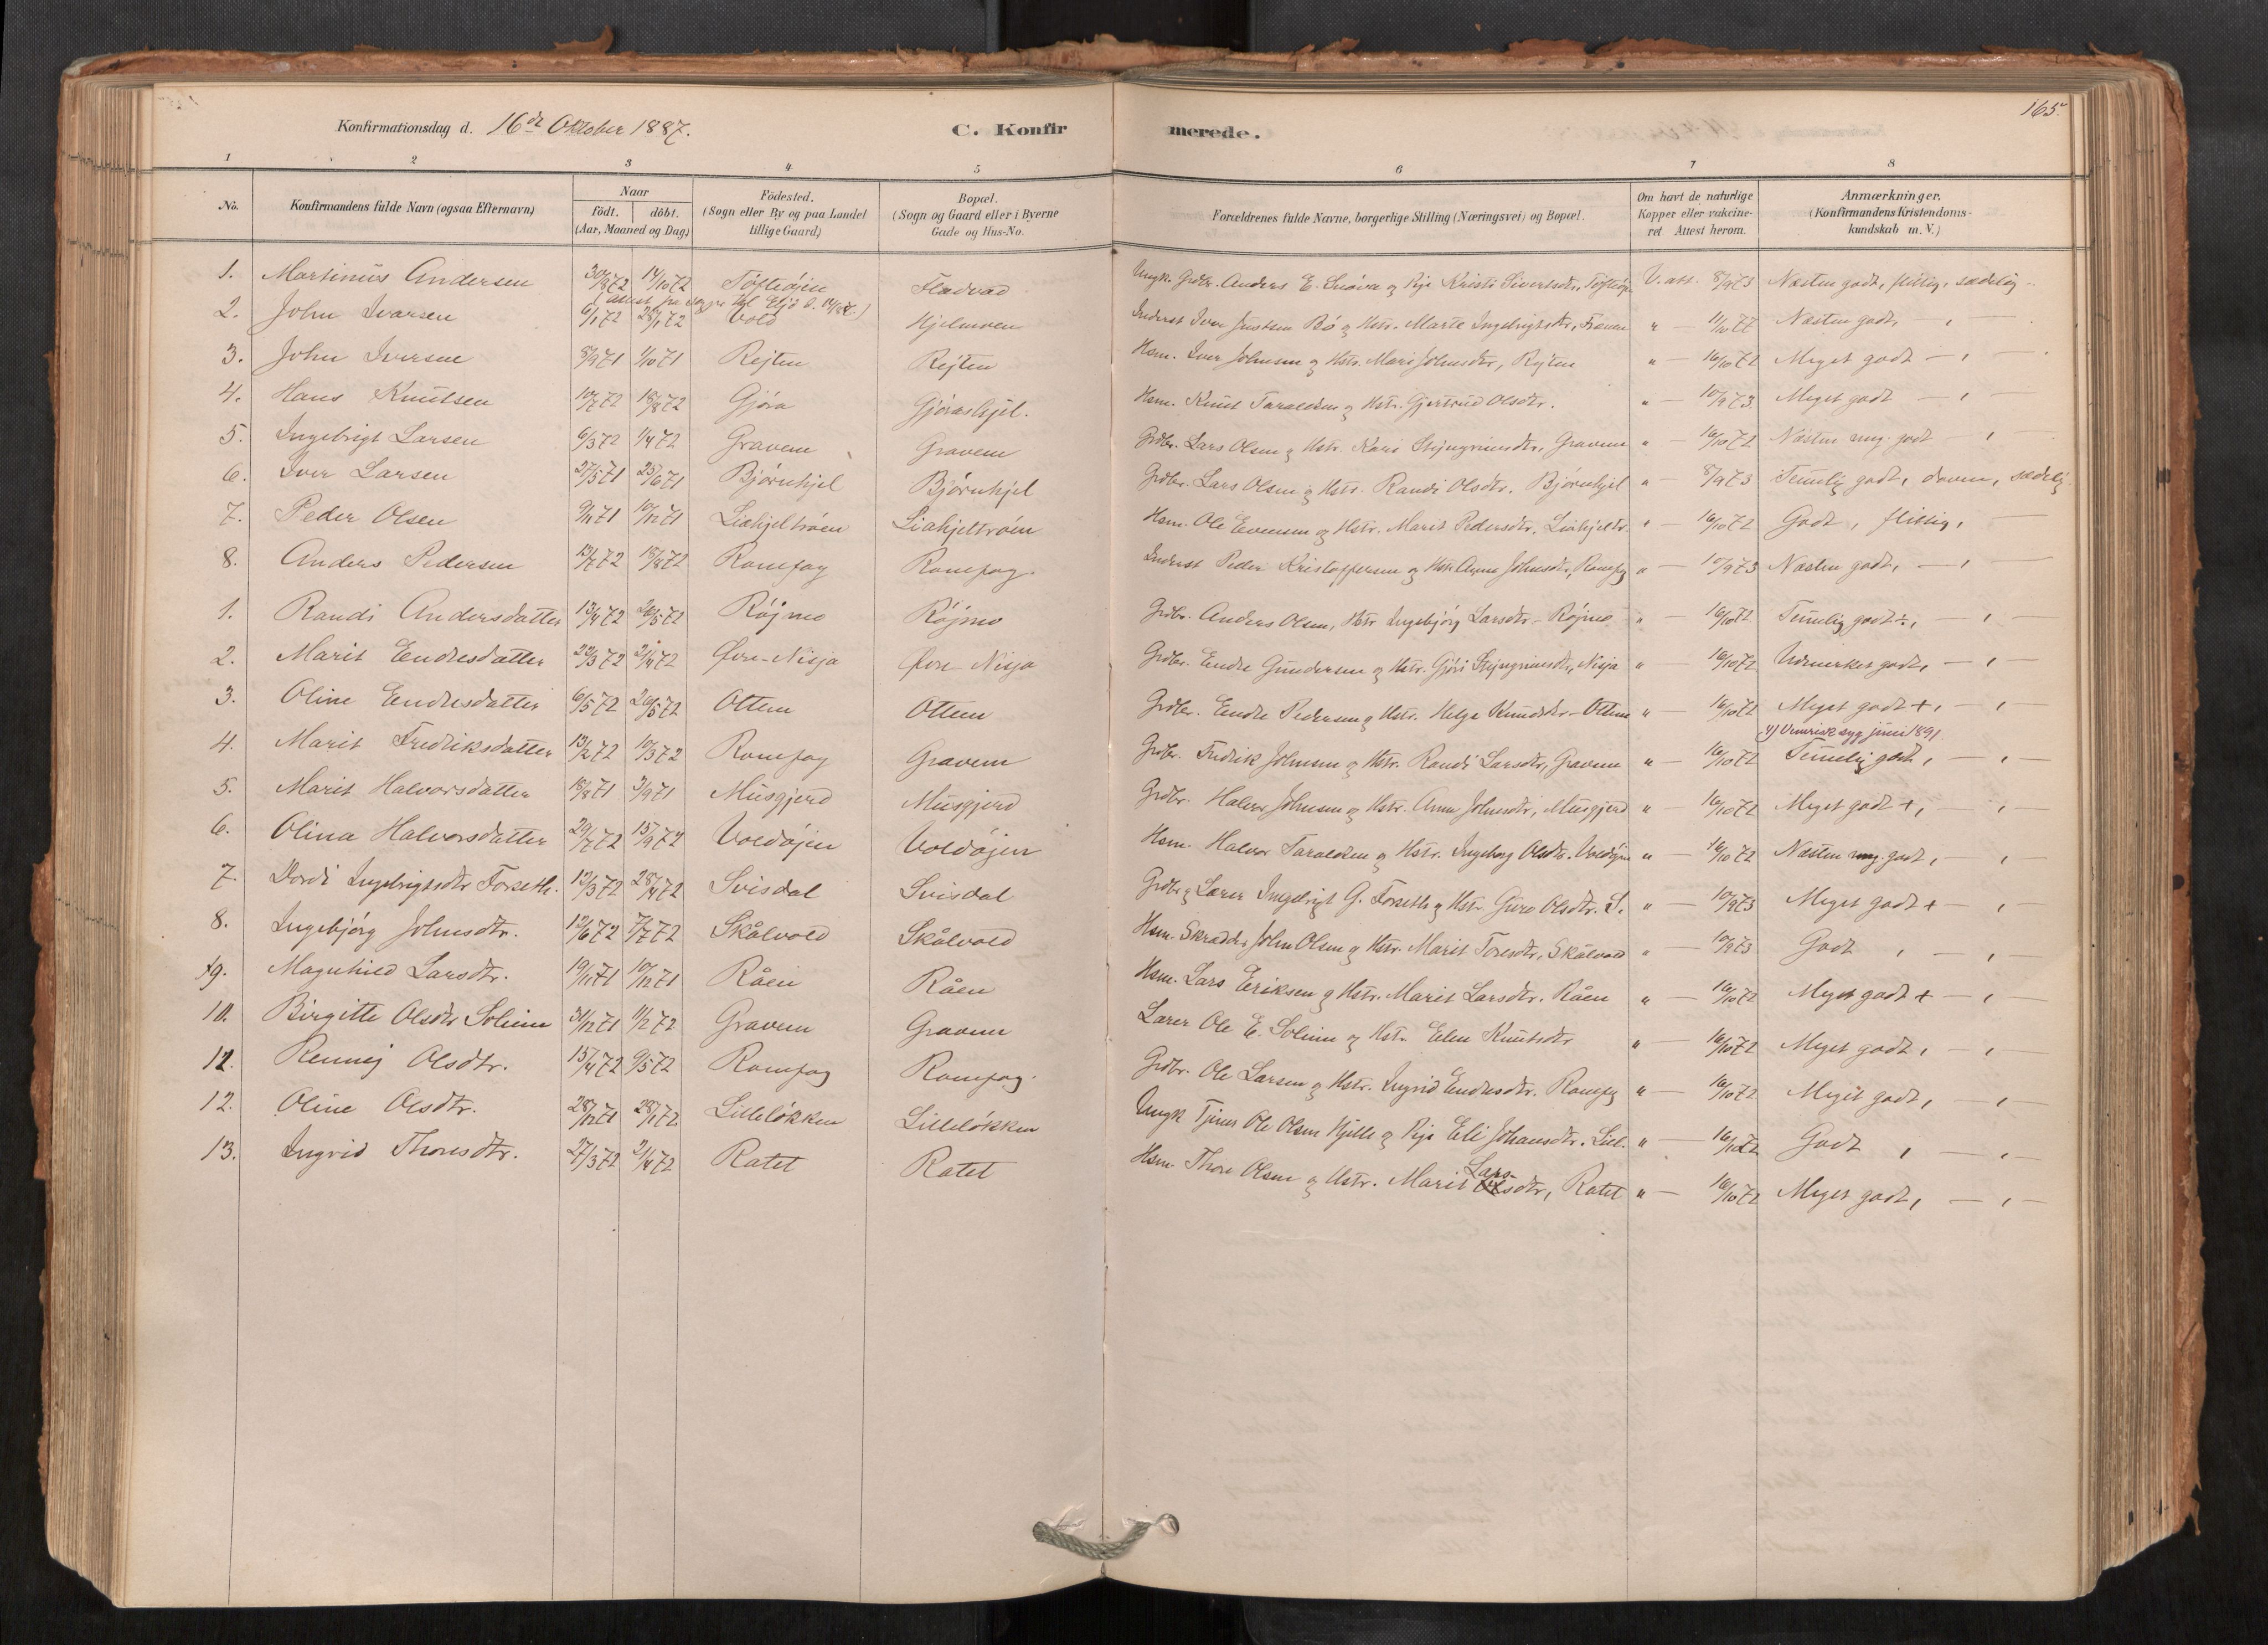 165.
Konfirmationsdag d. 16de Oktober 1887. C. Konfirmerede.
1 2 3 4 5 6 7 8
No. Konfirmandens fulde Navn (ogsaa Efternavn) Naar födt. döbt. (Aar, Maaned og Dag) Födested. (Sogn eller By og paa Landet tillige Gaard) Bopæl. (Sogn og Gaard eller i Byerne Gade og Hus-No. Forældrenes fulde Navne, borgerlige Stilling (Næringsvei) og Bopæl. Om havt de naturlige Kopper eller vakcineret Attest herom. Anmærkninger. (Konfirmandens Kristendomskundskab m. V.)
1. Martinus Andersen 30/8 72 14/10 72 Tøftøjen Fladvad Ungk. Grdbr. Anders E. og Pige Kristi Sivertsdtr., V. att. 8/9 73 Næsten godt, flittig, sædelig
2. John Ivarsen 6/1 72 28/1 72 Vold Hjelmoen Inderst Iver Justsen Bö og Hstr. Marte Ingebrigtsdtr, " — 11/10 77 Næsten godt, — , —
3. John Iversen 8/9 71 1/10 71 Rejten Rejten Hsm. Iver Johnsen og Hstr. Mari Johnsdtr, Rejten " — 16/10 72 Meget godt — , —
4. Hans Knutsen 10/7 72 18/8 72 Gjöra Gjörashjel. Hsm. Knut Taraldsen og Hstr. Gjertrud Olsdtr. " — 10/9 73 Meget godt — , —
5. Ingebrigt Larsen 6/3 72 1/4 72 Gravem Gravem Grdbr. Lars Olsen og Hstr. Kari Stejngrimsdtr, Gravem " — 16/10 72 Næsten meg. godt , —
6. Iver Larsen 27/5 71 25/6 71 Björnhjel Björnhjel Grdbr. Lars Olsen og Hstr. Randi Olsdtr. Björnhjel " — 8/9 73 Temlig godt, doven, sædelig.
7. Peder Olsen 9/11 71 10/12 71 Liahjeltröen Liahjeltröen Hsm. Ole Evensen og Hstr. Marit Pedersdtr, Liahjeltr. " — 16/10 72 Godt, flittig, —
8. Anders Pedersen 13/7 72 18/8 72 Romfog Romfog. Inderst Peder Kristoffersen og Hstr. Anne Johnsdtr, Romfog " — 10/9 73 Næsten godt, — , —
1. Randi Andersdatter 13/4 72 20/5 72 Röjmo Röjmo Grdbr. Anders Olsen, Hstr Ingebjörg Larsdtr - Röjmo " — 16/10 72 Temlig godt ÷, — , —
2. Marit Endresdatter 22/3 72 21/4 72 Øvre-Nisja Øvre-Nisja Grdbr. Endre Gundersen og Hstr. Gjöri Stejngrimsdtr, Nisja " — 16/10 72 Udmerket godt, — , —
3. Oline Endresdatter 6/5 72 20/5 72 Ottem Ottem Grdbr. Endre Pedersen og Hstr. Helga Knudsdtr - Ottem " — 16/10 72 Meget godt +, — ,
4. Marit Fredriksdatter 13/2 72 10/3 72 Romfog Gravem Grdbr. Fredrik Johnsen og Hstr. Randi Larsdtr, Gravem " — 16/10 72 Temlig godt, — , —
juni 1891
5. Marit Halvorsdatter 18/8 71 3/9 71 Musgjerd Musgjerd Grdbr. Halvor Johnsen og Hstr. Anne Johnsdtr, Musgjerd " — 16/10 72 Meget godt +, — ,
6. Olina Halvorsdatter 29/7 72 15/9 72 Voldøjen Voldøjen Hsm. Halvor Taraldsen og Hstr. Ingeborg Olsdtr. Voldøjen " — 16/10 72 Næsten meg. godt, — ,
7. Dordi Ingebrigtsdtr Forseth. 12/3 72 28/4 72 Svisdal Svisdal Grdbr og Lærer Ingebrigt G. Forseth og Hstr Guro Olsdtr. S. " — 10/9 73 Meget godt + — ,
8. Ingebjörg Johnsdtr. 12/6 72 7/7 72 Skålvold Skålvold Hsm. Skrædder John Olsen og Hstr. Marit Toresdtr, Skålvold " — 10/9 73 Godt , — ,
9. Magnhild Larsdtr. 19/11 71 10/12 71 Råen Råen Hsm. Lars Eriksen og Hstr. Marit Larsdtr. Råen " — 16/10 72 Meget godt + — , —
10. Birgitte Olsdtr Solem 31/12 71 11/2 72 Gravem Gravem Lærer Ole E. Solem og Hstr. Elen Knutsdtr " — 16/10 72 Meget godt, — , —
11. Rennej Olsdtr. 15/4 72 9/5 72 Romfog Romfog. Grdbr. Ole Larsen og Hstr. Ingrid Endresdtr. Romfog " — 16/10 72 Meget godt, — , —
12. Oline Olsdtr. 28/12 71 28/1 72 Lilleløkken Lilleløkken Ungk Tjener Ole Olsen Hjelle og Pige Eli Johansdtr. Lill. " — 16/10 72 Godt , — , —
13. Ingrid Thoresdtr. 27/3 72 21/4 72 Ratet Ratet Hsm. Thore Olsen og Hstr. Marit Larsdtr, Ratet " — 16/10 72 Meget godt, — , —